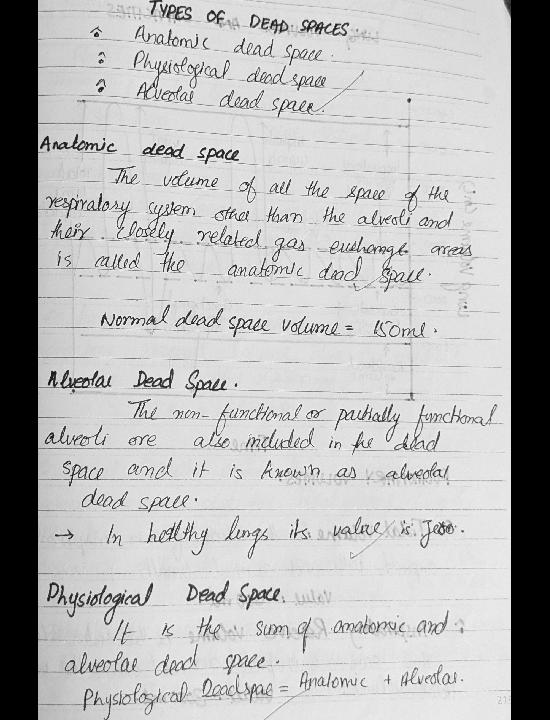 TYPES OF DEAD SPACES
Anatomic dead space.
Physiological dead space
Alveolar dead space.
Anatomic dead space
The volume of all the space of the
respiratory system other than the alveoli and
their closely related gas exchange areas
is called the anatomic dead space.
Normal dead space volume = 150ml.
Alveolar Dead Space.
The non-functional or partially functional
alveoli are also included in the dead
space and it is known as alveolar
dead space.
→ In healthy lungs its value is Zero.
Physiological Dead Space.
It is the sum of anatomic and
alveolar dead space.
Physiological Deadspae = Anatomic + Alveolar.